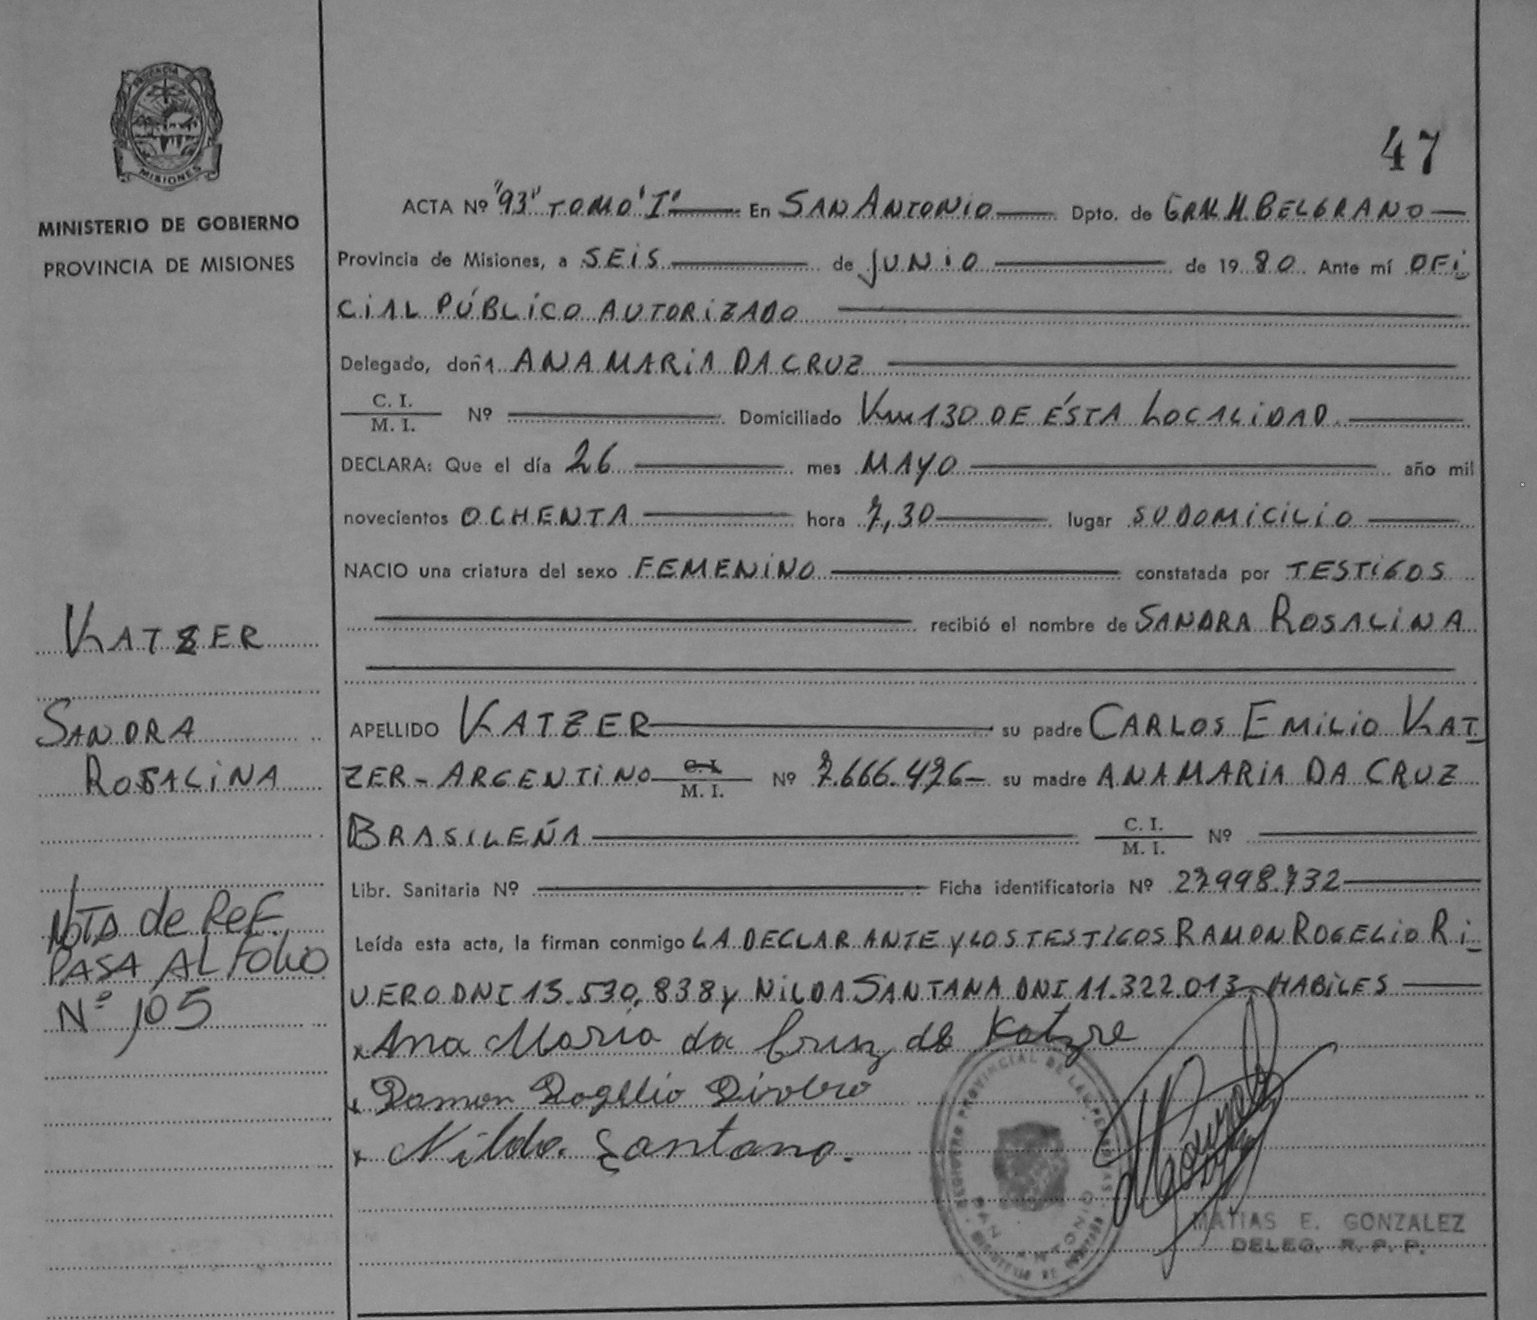 47
PROVINCIA
MISIONES
MINISTERIO DE GOBIERNO
PROVINCIA DE MISIONES
ACTA Nº "93" TOMO "I" En SAN ANTONIO Dpto. de GRAL M. BELGRANO
Provincia de Misiones, a SEIS de JUNIO de 1980. Ante mí OFI
CIAL PÚBLICO AUTORIZADO
Delegado, doña ANA MARIA DA CRUZ
C. I.
M. I. Nº Domiciliado Km 130 DE ÉSTA LOCALIDAD
DECLARA: Que el día 26 mes MAYO año mil
novecientos OCHENTA hora 7,30 lugar SU DOMICILIO
NACIO una criatura del sexo FEMENINO constatada por TESTIGOS
recibió el nombre de SANDRA ROSALINA
KATZER
SANDRA
ROSALINA
APELLIDO KATZER su padre CARLOS EMILIO KAT
ZER - ARGENTINO C. I. M. I. Nº 7.666.426 su madre ANA MARIA DA CRUZ
BRASILEÑA C. I. M. I. Nº
Libr. Sanitaria Nº Ficha identificatoria Nº 27.998.732
Leída esta acta, la firman conmigo LA DECLARANTE y LOS TESTIGOS RAMON ROGELIO RI
VERO DNI 13.530.838 y NILDA SANTANA DNI 11.322.013 HABILES
NOTA de REF.
PASA AL FOLIO
Nº 105
x Ana Maria da Cruz de Katzre
x Ramon Rogelio Rivero
x Nilda Santana.
REGISTRO PROVINCIAL DE LAS PERSONAS
SAN ANTONIO
MATIAS E. GONZALEZ
DELEG. R. P. P.